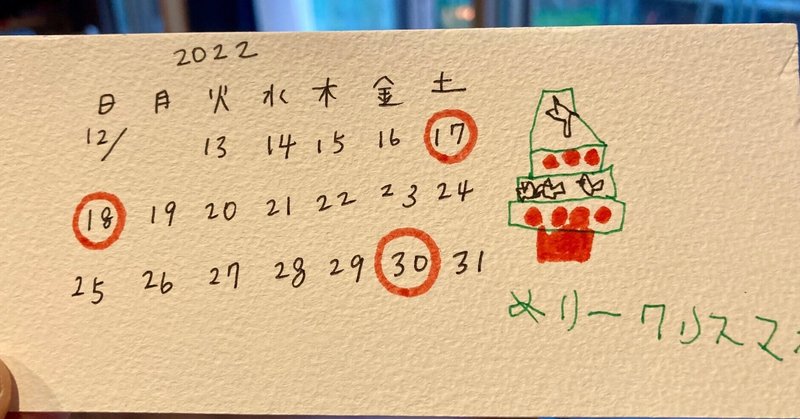 2022
日 月 火 水 木 金 土
12/ 13 14 15 16 17
18 19 20 21 22 23 24
25 26 27 28 29 30 31
メリークリスマ